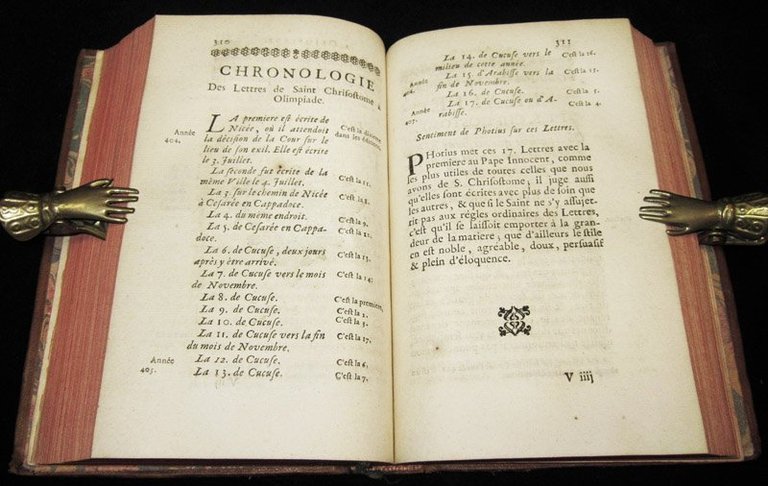 310
CHRONOLOGIE
Des Lettres de Saint Chrisostome à
Olimpiade.
Année 404.
LA premiere est écrite de
Nicée, où il attendoit
la décision de la Cour sur le
lieu de son exil. Elle est écrite
le 3. Juillet.
C'est la
dans les éditions
La seconde fut écrite de la
même Ville le 4. Juillet.
C'est la 11.
La 3. sur le chemin de Nicée
à Cesarée en Cappadoce.
C'est la 8.
La 4. du même endroit.
C'est la 9.
La 5. de Cesarée en Cappa-
doce.
C'est la 12.
La 6. de Cucuse, deux jours
après y être arrivé.
C'est la 13.
La 7. de Cucuse vers le mois
de Novembre.
C'est la 14.
La 8. de Cucuse.
C'est la premiere,
La 9. de Cucuse.
C'est la 2.
La 10. de Cucuse.
C'est la 5.
La 11. de Cucuse vers la fin
du mois de Novembre.
C'est la 17.
Année 405.
La 12. de Cucuse.
C'est la 6.
La 13. de Cucuse.
C'est la 7.
311
La 14. de Cucuse vers le
milieu de cette année.
C'est la 16.
Année
La 15 d'Arabisse vers la
fin de Novembre.
C'est la 15.
La 16. de Cucuse.
C'est la 3.
Année 407.
La 17. de Cucuse ou d'A-
rabisse.
C'est la 4.
Sentiment de Photius sur ces Lettres.
PHotius met ces 17. Lettres avec la
premiere au Pape Innocent, comme
les plus utiles de toutes celles que nous
avons de S. Chrisostome; il juge aussi
qu'elles sont écrites avec plus de soin que
les autres, & que si le Saint ne s'y assujet-
tit pas aux régles ordinaires des Lettres,
c'est qu'il se laissoit emporter à la gran-
deur de la matiere; que d'ailleurs le stile
en est noble, agréable, doux, persuasif
& plein d'éloquence.
V iiij